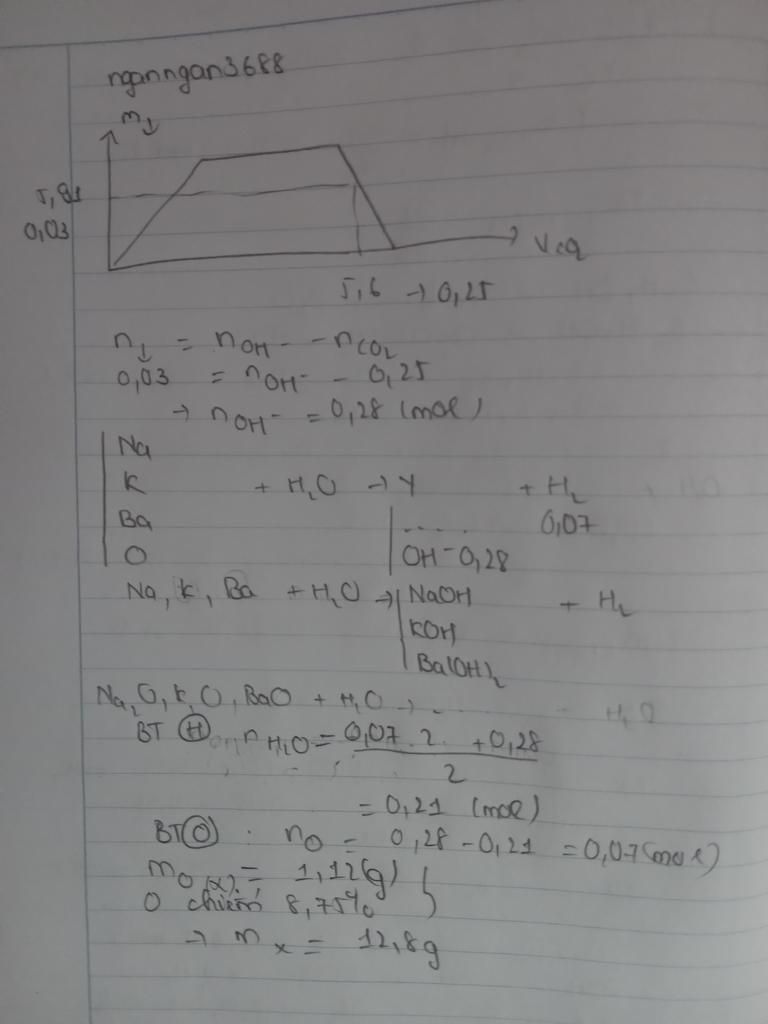 nganngan3688
m↓
5,91
0,03
V CO2
5,6 → 0,25
n↓ = nOH- - nCO2
0,03 = nOH- - 0,25
→ nOH- = 0,28 (mol)
Na
K + H2O → Y + H2
Ba .... 0,07
O OH- 0,28
Na, K, Ba + H2O → NaOH + H2
KOH
Ba(OH)2
Na2O, K2O, BaO + H2O → -
BT (H) nH2O = 0,07 . 2 + 0,28
2
= 0,21 (mol)
BT (O) : nO = 0,28 - 0,21 = 0,07 (mol)
mO (X) = 1,12 (g)
O chiếm 8,75%
→ mx = 12,8g